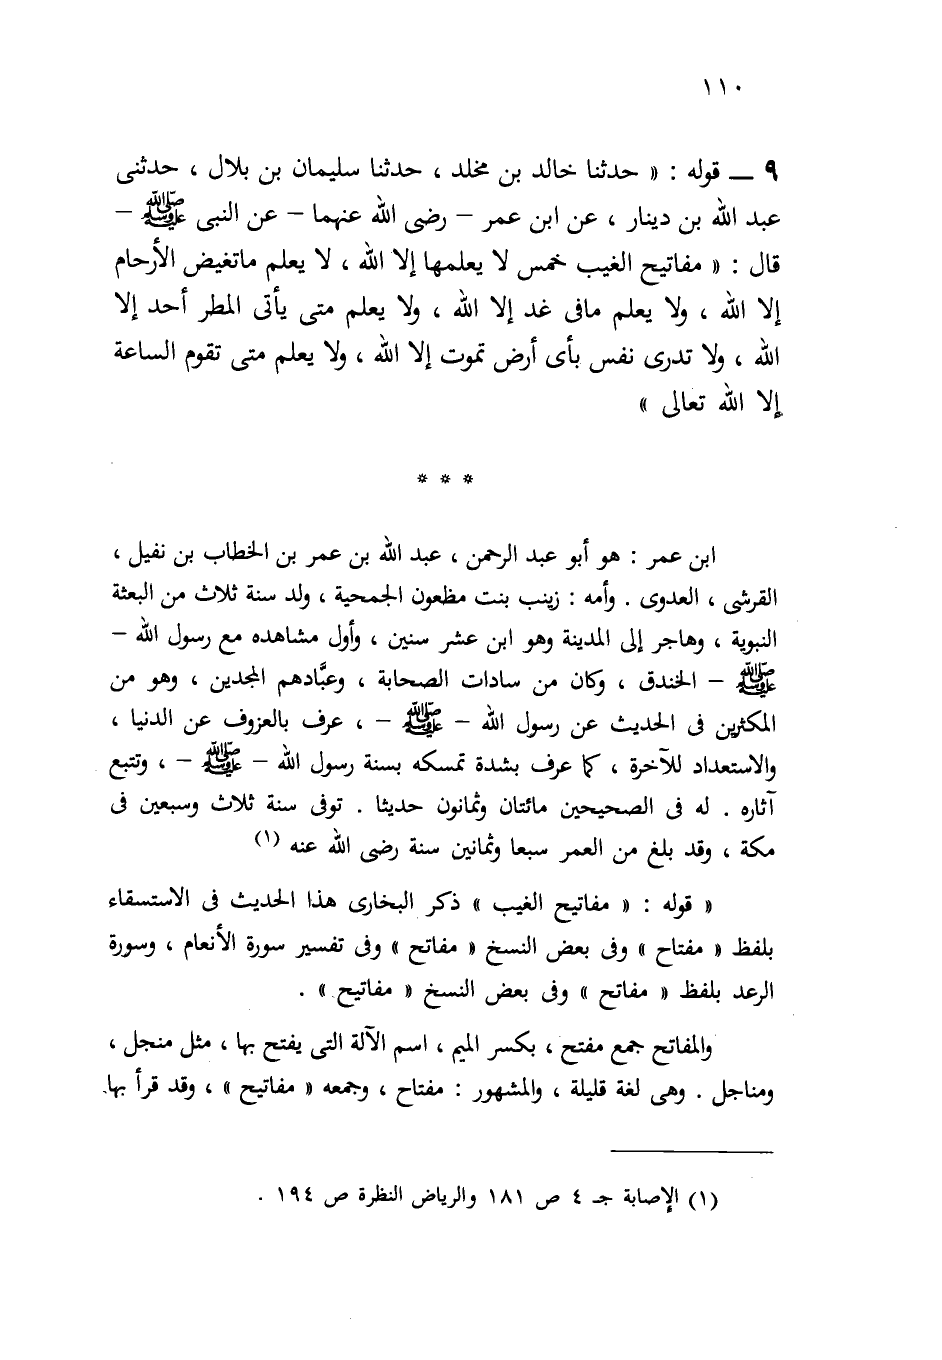 ١١٠
٩ ــ قوله : « حدثنا خالد بن مخلد ، حدثنا سليمان بن بلال ، حدثنى
عبد الله بن دينار ، عن ابن عمر – رضى الله عنهما – عن النبى ﷺ –
قال : « مفاتيح الغيب خمس لا يعلمها إلا الله ، لا يعلم ماتغيض الأرحام
إلا الله ، ولا يعلم مافى غد إلا الله ، ولا يعلم متى يأتى المطر أحد إلا
الله ، ولا تدرى نفس بأى أرض تموت إلا الله ، ولا يعلم متى تقوم الساعة
إلا الله تعالى »
* * *
ابن عمر : هو أبو عبد الرحمن ، عبد الله بن عمر بن الخطاب بن نفيل ،
القرشى ، العدوى . وأمه : زينب بنت مظعون الجمحية ، ولد سنة ثلاث من البعثة
النبوية ، وهاجر إلى المدينة وهو ابن عشر سنين ، وأول مشاهده مع رسول الله –
ﷺ – الخندق ، وكان من سادات الصحابة ، وعبَّادهم المجدين ، وهو من
المكثرين فى الحديث عن رسول الله – ﷺ – ، عرف بالعزوف عن الدنيا ،
والاستعداد للآخرة ، كما عرف بشدة تمسكه بسنة رسول الله – ﷺ – ، وتتبع
آثاره . له فى الصحيحين مائتان وثمانون حديثا . توفى سنة ثلاث وسبعين فى
مكة ، وقد بلغ من العمر سبعا وثمانين سنة رضى الله عنه (١)
« قوله : « مفاتيح الغيب » ذكر البخارى هذا الحديث فى الاستسقاء
بلفظ « مفتاح » وفى بعض النسخ « مفاتح » وفى تفسير سورة الأنعام ، وسورة
الرعد بلفظ « مفاتح » وفى بعض النسخ « مفاتيح » .
والمفاتح جمع مفتح ، بكسر الميم ، اسم الآلة التى يفتح بها ، مثل منجل ،
ومناجل . وهى لغة قليلة ، والمشهور : مفتاح ، وجمعه « مفاتيح » ، وقد قرأ بها
(١) الإصابة جـ ٤ ص ١٨١ والرياض النظرة ص ١٩٤ .